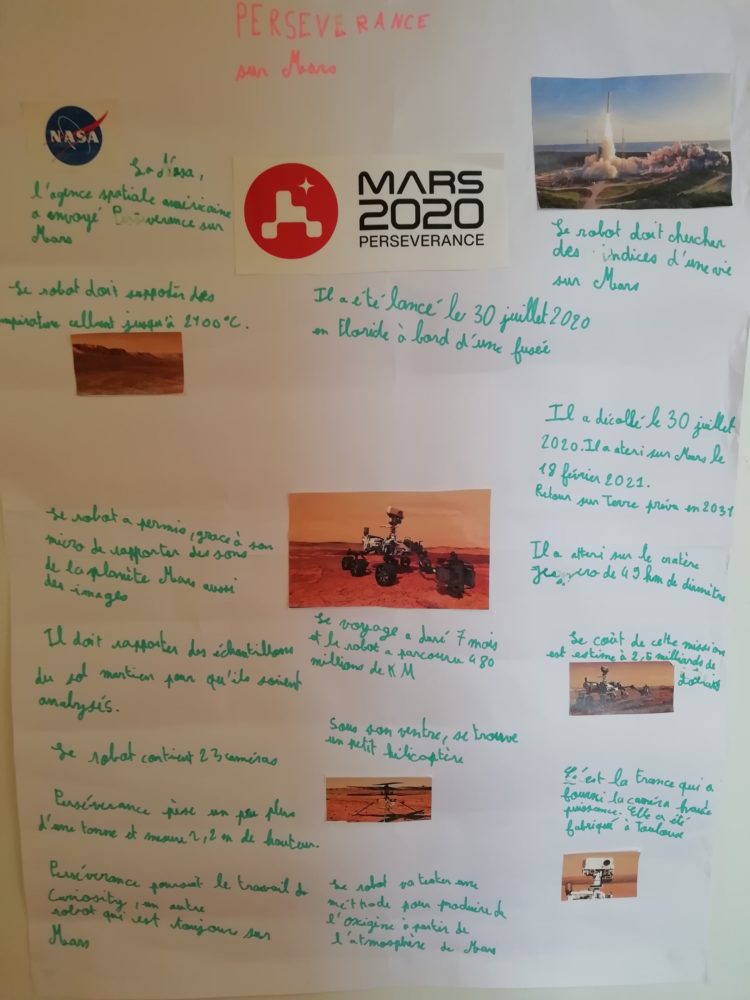 PERSEVERANCE
sur Mars
NASA
La Nasa,
l'agence spatiale américaine
a envoyé Perseverance sur
Mars
MARS
2020
PERSEVERANCE
Le robot doit chercher
des indices d'une vie
sur Mars
Le robot doit supporter des
température allant jusqu'à 2400°C.
Il a été lancé le 30 juillet 2020
en Floride à bord d'une fusée
Il a décollé le 30 juillet
2020. Il a ateri sur Mars le
18 février 2021.
Retour sur Terre prévu en 2031
Le robot a permis, grace à son
micro de rapporter des sons
de la planète Mars aussi
des images
Il a atteri sur le cratère
de 49 km de diamètre
Il doit rapporter des échantillons
du sol martien pour qu'ils soient
analysés.
Le voyage a duré 7 mois
et le robot a parcouru 480
millions de KM
Le coût de cette mission
est estimé à 2,5 milliards de
Le robot contient 23 caméras
Sous son ventre, se trouve
un petit hélicoptère
Perséverance pèse un peu plus
d'une tonne et mesure 2,2 m de hauteur.
C'est la France qui a
fourni la caméra haute
puissance. Elle a été
fabriqué à Toulouse
Perséverance poursuit le travail de
Curiosity, un autre
robot qui est toujours sur
Mars
Le robot va tester une
méthode pour produire de
l'oxigène à partir de
l'atmosphère de Mars